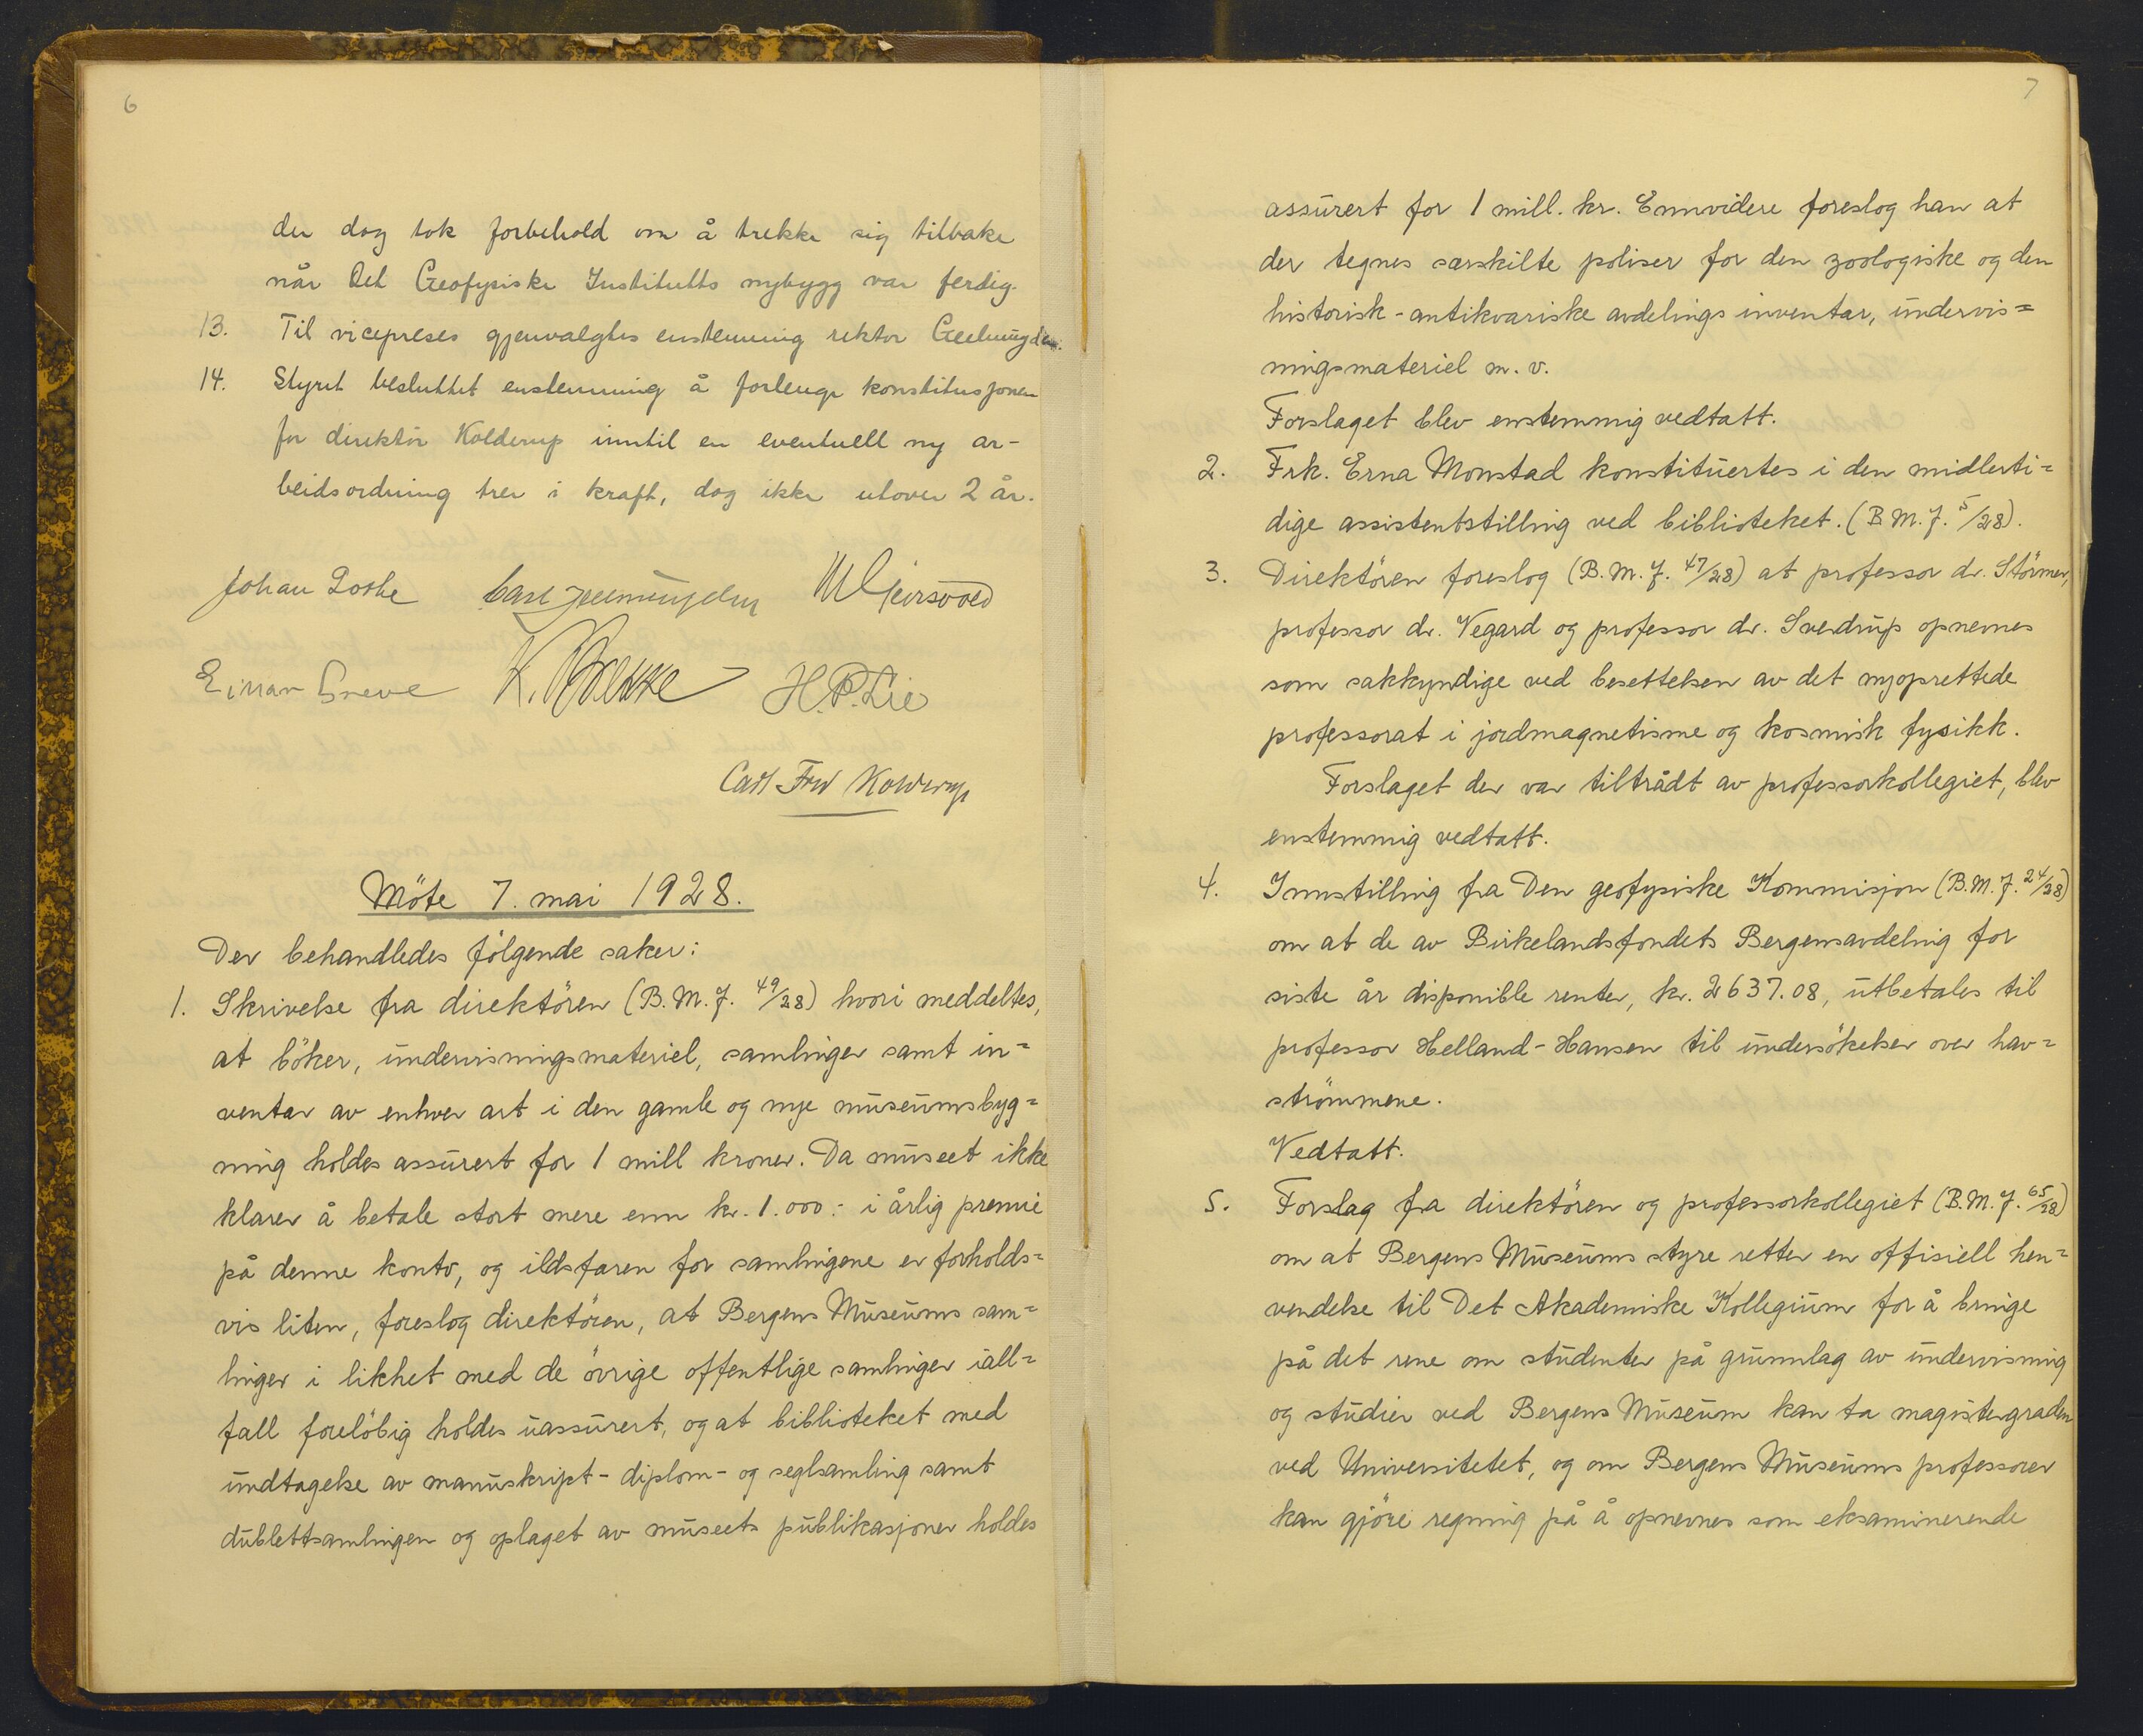 6
der dog tok forbehold om å trekke sig tilbake
når Det Geofysiske Institutts nybygg var ferdig.
13. Til vicepreses gjenvalgtes enstemmig rektor Geelmuyden.
14. Styret besluttet enstemmig å forlenge konstitusjonen
for direktör Kolderup inntil en eventuell ny ar-
beidsordning trer i kraft, dog ikke utover 2 år.
Johan Lothe Carl Geelmuyden
Einar Greve K. Bakke H.P. Lie
Carl Fred Kolderup
Möte 7. mai 1928.
Der behandledes fölgende saker:
1. Skrivelse fra direktören (B.M.J. 49/28) hvori meddeltes,
at böker, undervisningsmateriel, samlinger samt in=
ventar av enhver art i den gamle og nye museumsbyg=
ning holdes assurert for 1 mill kroner. Da museet ikke
klarer å betale stort mere enn kr. 1.000:- i årlig premie
på denne konto, og ildsfaren for samlingene er forholds=
vis liten, foreslog direktören, at Bergens Museums sam=
linger i likhet med de övrige offentlige samlinger iall=
fall forelöbig holdes uassurert, og at biblioteket med
undtagelse av manuskript- diplom- og seglsamling samt
dublettsamlingen og oplaget av museets publikasjoner holdes
7
assurert for 1 mill. kr. Ennvidere foreslog han at
der tegnes særskilte poliser for den zoologiske og den
historisk-antikvariske avdelings inventar, undervis=
ningsmateriel m.v.
Forslaget blev enstemmig vedtatt.
2. Frk. Erna Monstad konstituertes i den midlerti=
dige assistentstilling ved biblioteket. (B.M.J. 5/28).
3. Direktören foreslog (B.M.J. 47/28) at professor dr. Störmer,
professor dr. Vegard og professor dr. Sverdrup opnevnes
som sakkyndige ved besettelsen av det nyoprettede
professorat i jordmagnetisme og kosmisk fysikk.
Forslaget der var tiltrådt av professorkollegiet, blev
enstemmig vedtatt.
4. Innstilling fra Den geofysiske Kommisjon (B.M.J. 24/28)
om at de av Birkelandsfondets Bergensavdeling for
siste år disponible renter, kr. 2637.08, utbetales til
professor Helland-Hansen til undersökelser over hav=
strömmene.
Vedtatt.
5. Forslag fra direktören og professorkollegiet (B.M.J. 65/28)
om at Bergens Museums styre retter en offisiell hen=
vendelse til Det Akademiske Kollegium for å bringe
på det rene om studenter på grunnlag av undervisning
og studier ved Bergens Museum kan ta magistergraden
ved Universitetet, og om Bergens Museums professorer
kan gjöre regning på å opnevnes som eksaminerende